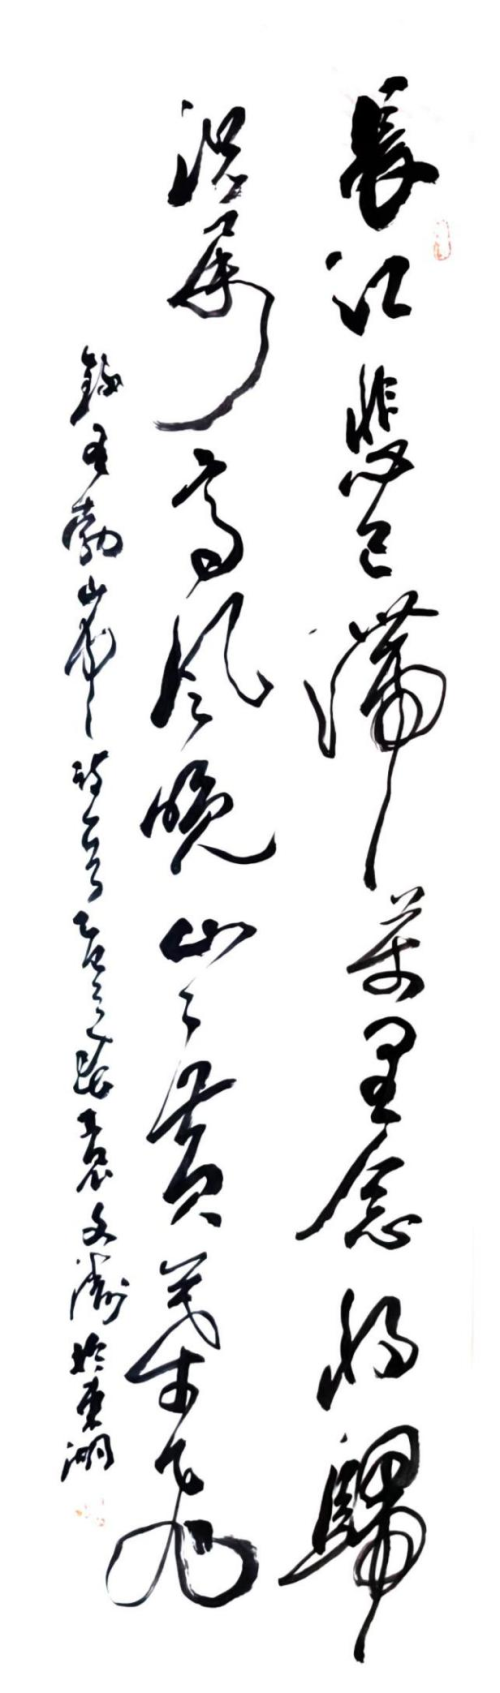 長江悲已滯萬里念將歸
況屬高風晚山々黃葉飛
錄王勃山中詩一首乙巳之袁文於東湖